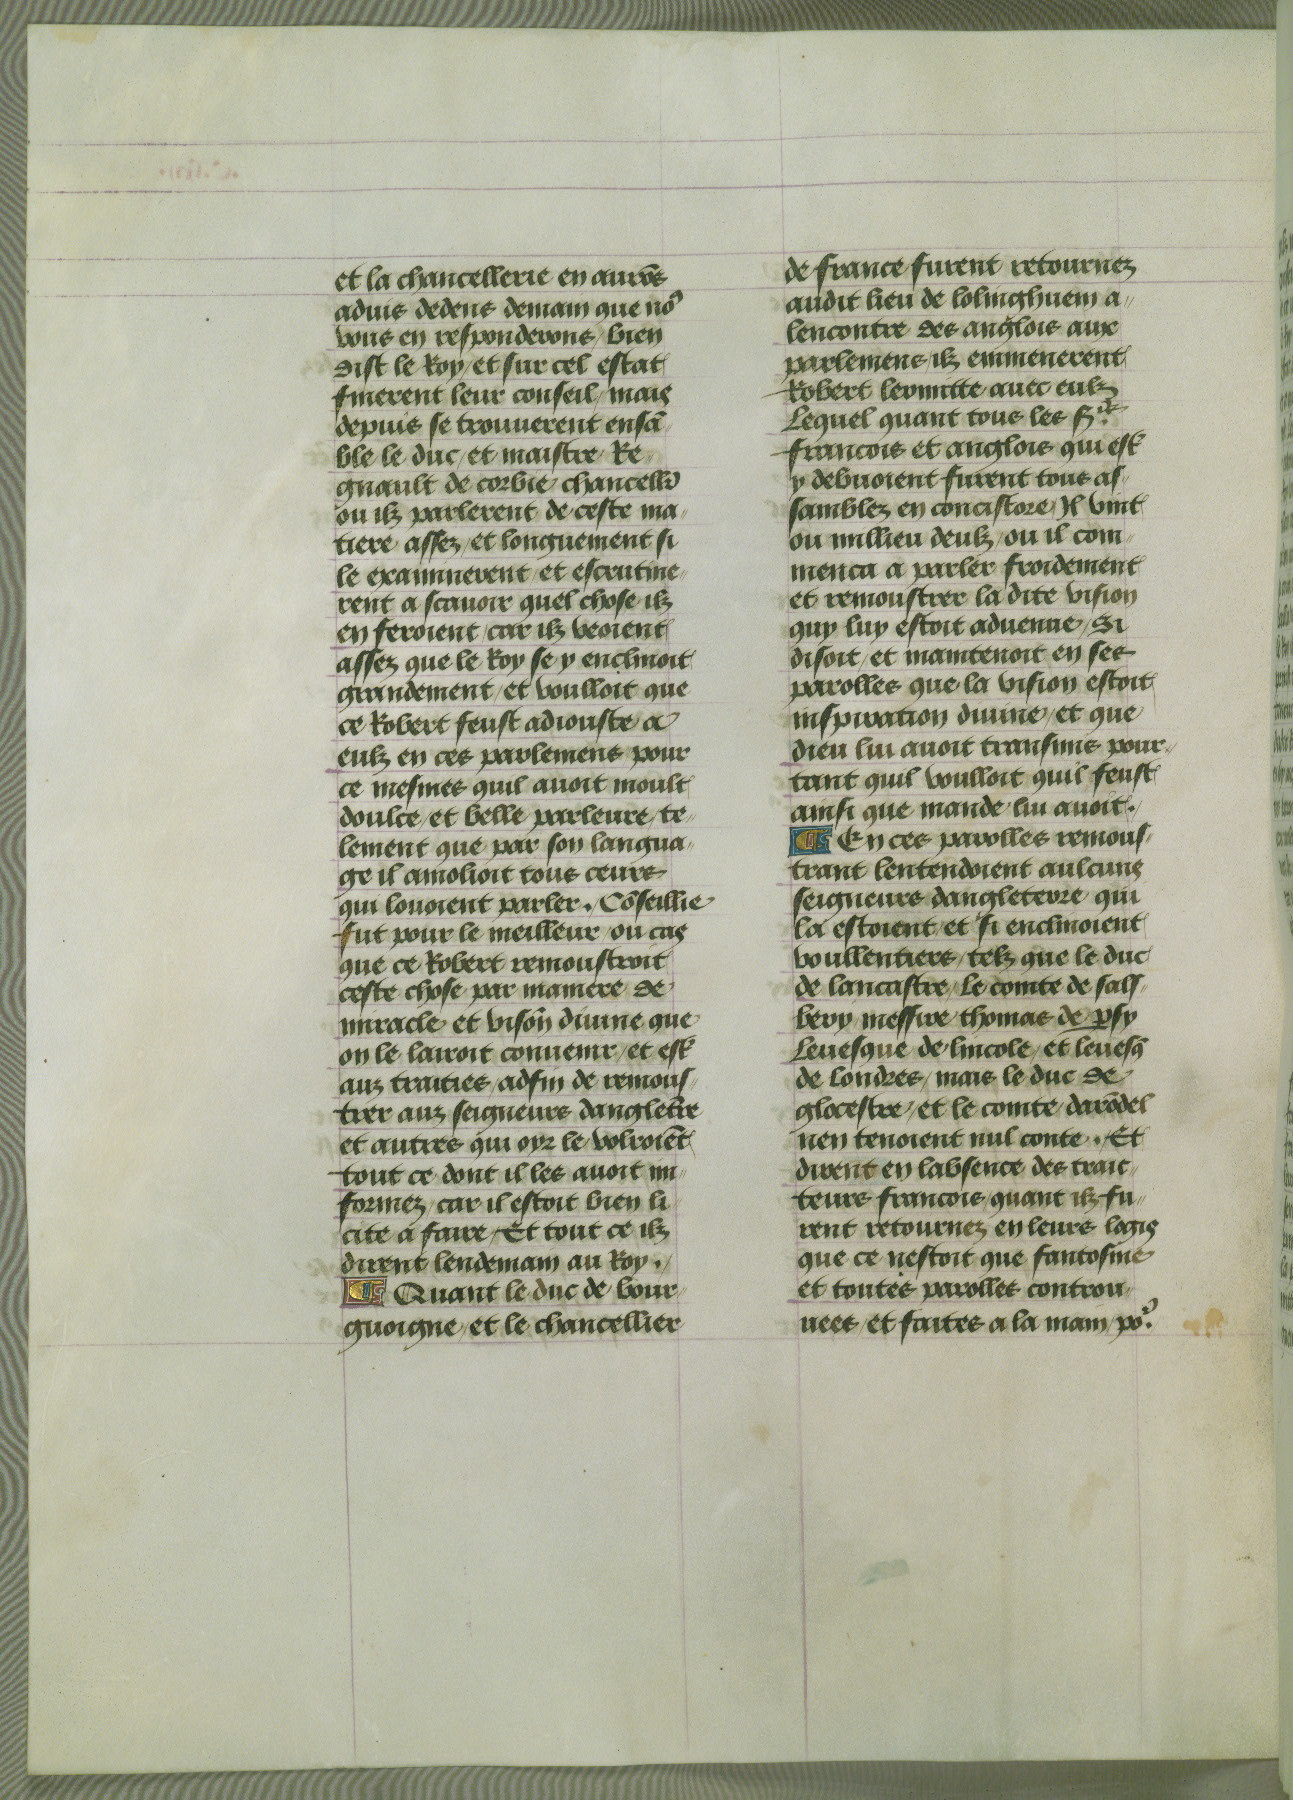 et la chancellerie en aurõs
aduis dedens demain que no9
vous en responderons / bien
dist le Roy / et sur cel estat
finerent leur conseil / mais
depuis se trouuerent ensã
ble le duc / et maistre Re
gnault de corbie chancell̃r
ou ilz parlerent de ceste ma
tiere assez / et longuement si
le examinerent / et escrutine
rent a scauoir quel chose ilz
en feroient / car ilz veoient
assez que le Roy se y enclinoit
grandement / et voulloit que
ce Robert feust adiouste a
eulz en ces parlemens pour
ce mesmes quil auoit moult
doulce / et belle parleure / te
lement que par son langua
ge il amolioit tous ceurs
qui louoient parler . Cõseillie
fut pour le meilleur / ou cas
que ce Robert remoustroit
ceste chose par maniere de
miracle et visõn diuine que
on le lairoit conuenir / et estꝛ
aux traities / adfin de remous
trer aux seigneurs dangletr̃e
et autres qui oyr le volroiẽt
tout ce dont il les auoit in
formez / car il estoit bien li
cite a faire / Et tout ce ilz
dirent lendemain au Roy . /
¶ Quant le duc de bour
guoigne / et le chancellier
de france furent retournez
audit lieu de lolinghuem a
lencontre des anglois aux
parlemens / ilz emmenerent
Robert lermitte auec eulz
Lequel quant tous les sr̃s
francois et anglois qui estꝛ
y debuoient furent tous as
samblez en concistore / Il vint
ou millieu deulz / ou il com
menca a parler froidement
et remoustrer la dite vision
quy luy estoit aduenue / Si
disoit / et maintenoit en ses
parolles que la vision estoit
inspiration diuine / et que
dieu lui auoit transmis pour
tant quil voulloit quil feust
ainsi que mande lui auoit .
¶ En ces parolles remous
trant lentendoient aulcuns
seigneurs dangleterre qui
la estoient et si enclinoient
voullentiers / telz que le duc
de lancastre / le comte de sals
bery messire thomas de ꝑsy
Leuesque de lincole / et leuesq̃
de londres / mais le duc de
glocestre / et le comte darõdel
nen tenoient nul conte . Et
dirent en labsence des trait
teurs francois / quant ilz fu
rent retournez en leurs logis
que ce nestoit que fantosme
et toutes parolles controu
uees / et faites a la main / por